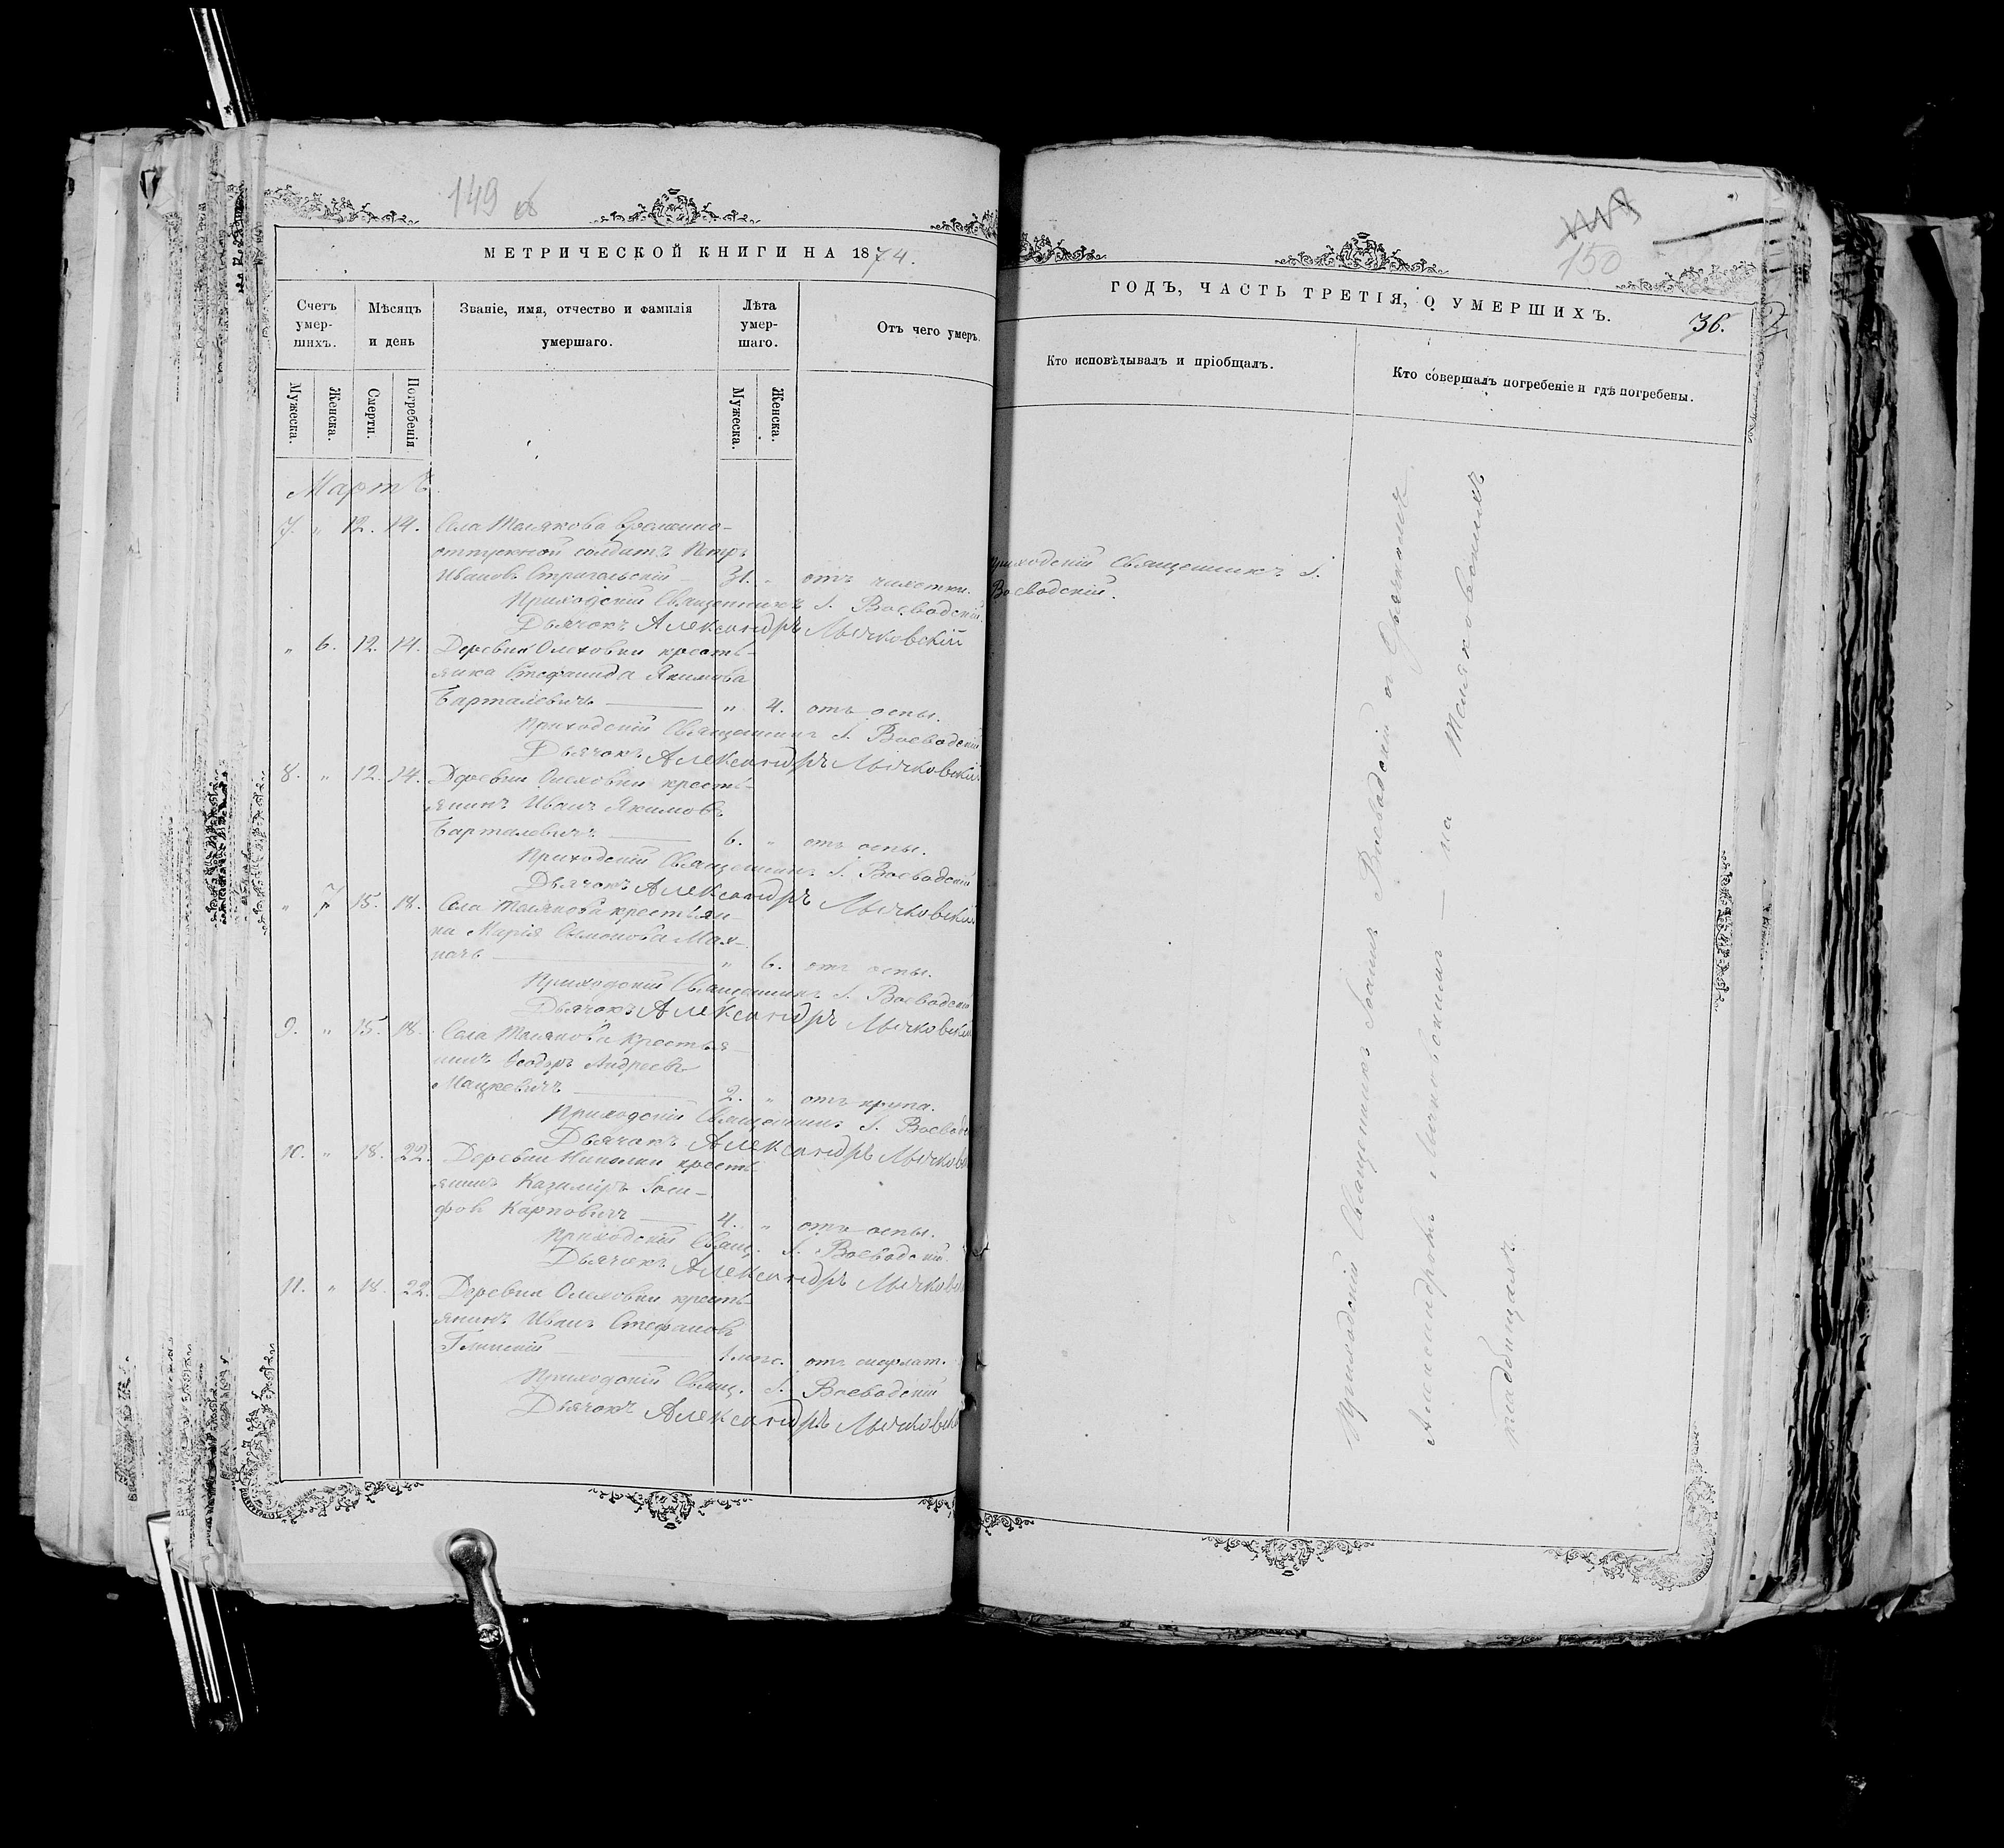 149 об
МЕТРИЧЕСКОЙ КНИГИ НА 1874.
Счетъ умер-шихъ.
Мѣсяцъ и день
Званіе, имя, отчество и фамилія умершаго.
Лѣта умер-шаго.
Отъ чего умеръ.
Мужеска.
Женска.
Смерти.
Погребенія
Мужеска.
Женска.
Мартъ.
7. " 12. 14. Села Телякова временно-
отпускной солдатъ Петръ
Ивановъ Стригольскій 31. " отъ чихотки.
Приходскій Священникъ І. Воеводскій.
Дьячокъ Александръ Лычковскій
" 6. 12. 14. Деревни Олеховки кресть-
янка Стефанида Якимова
Барталевичъ " 4. отъ оспы.
Приходскій Священникъ І. Воеводскій
Дьячокъ Александръ Лычковскій
8. " 12. 14. Деревни Олеховки кресть-
янинъ Иванъ Якимовъ
Барталевичъ 6. " отъ оспы.
Приходскій Священникъ І. Воеводскій
Дьячокъ Александръ Лычковскій
" 7 15. 18. Села Телякова крестьян-
ка Марія Симонова
" 6. отъ оспы.
Приходскій Священникъ І. Воеводскій
Дьячокъ Александръ Лычковскій
9. " 15. 18. Села Телякова крестья-
нинъ Ѳеодоръ Андреевъ
Мацкевичъ 2. " отъ крупа.
Приходскій Священникъ І. Воеводс
Дьячокъ Александръ Лычков
10. " 18. 22. Деревни кресть-
янинъ Казиміръ Іоси-
фовъ Карповичъ 4. " отъ оспы.
Приходскій Свящ. І. Воеводскій.
Дьячокъ Александръ Лычков
11. " 18. 22. Деревни Олеховки кресть-
янинъ Иванъ Стефановъ
Глинскій 1 мѣс. отъ скарлат.
Приходскій Свящ. І. Воеводскій
Дьячокъ Александръ Лычковск
150
ГОДЪ, ЧАСТЬ ТРЕТІЯ, О УМЕРШИХЪ.
36.
Кто исповѣдывалъ и пріобщалъ.
Кто совершалъ погребеніе и гдѣ погребены.
Приходскій Священникъ І.
Воеводскій.
Приходскій Священникъ Іоаннъ Воеводскій съ Дьячкомъ
Александромъ Лычковскимъ — на Теляковскомъ
кладбищахъ.